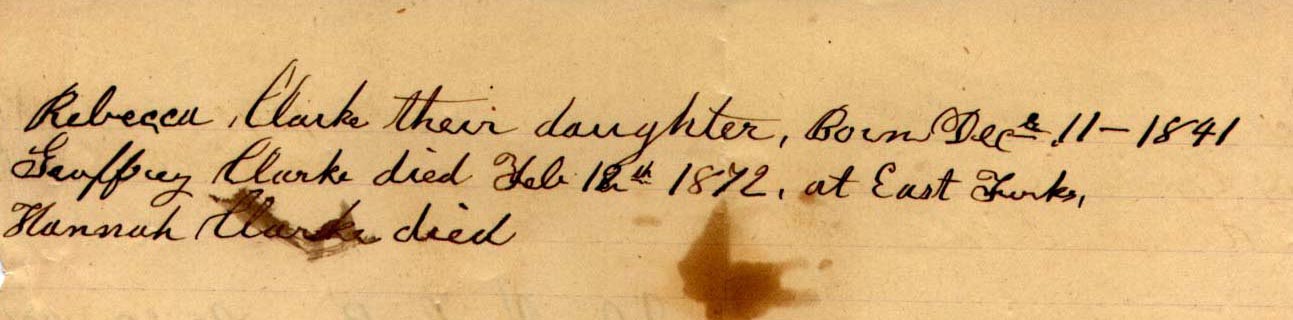 Rebecca Clarke their daughter, Born Dec 11 - 1841
Geoffrey Clarke died Feb 12th 1872, at East
Hannah Clarke died